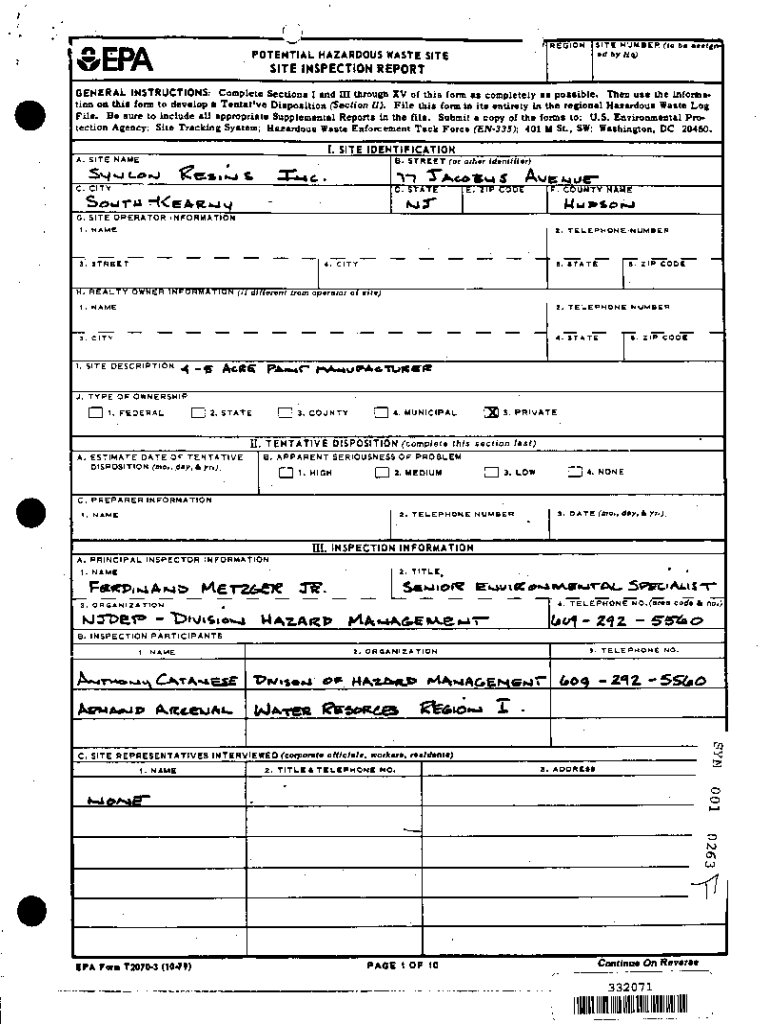 EPA
POTENTIAL HAZARDOUS WASTE SITE
SITE INSPECTION REPORT
REGION
SITE NUMBER (to be assign-
ed by Hq)
GENERAL INSTRUCTIONS: Complete Sections I and III through XV of this form as completely as possible. Then use the informa-
tion on this form to develop a Tentative Disposition (Section II). File this form in its entirety in the regional Hazardous Waste Log
File. Be sure to include all appropriate Supplemental Reports in the file. Submit a copy of the forms to: U.S. Environmental Pro-
tection Agency; Site Tracking System; Hazardous Waste Enforcement Task Force (EN-335); 401 M St., SW; Washington, DC 20460.
I. SITE IDENTIFICATION
A. SITE NAME
B. STREET (or other identifier)
SYNCON RESINS INC.
77 JACOBUS AVENUE
C. CITY
D. STATE
E. ZIP CODE
F. COUNTY NAME
SOUTH KEARNY
NJ
HUDSON
G. SITE OPERATOR INFORMATION
1. NAME
2. TELEPHONE NUMBER
3. STREET
4. CITY
5. STATE
6. ZIP CODE
H. REALTY OWNER INFORMATION (if different from operator of site)
1. NAME
2. TELEPHONE NUMBER
3. CITY
4. STATE
5. ZIP CODE
I. SITE DESCRIPTION 4-5 ACRE PAINT MANUFACTURER
J. TYPE OF OWNERSHIP
1. FEDERAL
2. STATE
3. COUNTY
4. MUNICIPAL
X 5. PRIVATE
II. TENTATIVE DISPOSITION (complete this section last)
A. ESTIMATE DATE OF TENTATIVE
DISPOSITION (mo., day, & yr.)
B. APPARENT SERIOUSNESS OF PROBLEM
1. HIGH
2. MEDIUM
3. LOW
4. NONE
C. PREPARER INFORMATION
1. NAME
2. TELEPHONE NUMBER
3. DATE (mo., day, & yr.)
III. INSPECTION INFORMATION
A. PRINCIPAL INSPECTOR INFORMATION
1. NAME
2. TITLE
FERDINAND METZGER JR.
SENIOR ENVIRONMENTAL SPECIALIST
3. ORGANIZATION
4. TELEPHONE NO. (area code & no.)
NJDEP - DIVISION HAZARD MANAGEMENT
609-292-5560
B. INSPECTION PARTICIPANTS
1. NAME
2. ORGANIZATION
3. TELEPHONE NO.
ANTHONY CATANESE
DIVISON OF HAZARD MANAGEMENT
609-292-5560
ARMAND ARCENAL
WATER RESORCES REGION I.
C. SITE REPRESENTATIVES INTERVIEWED (corporate officials, workers, residents)
1. NAME
2. TITLE & TELEPHONE NO.
3. ADDRESS
NONE
SYN 001 0263
EPA Form T2070-3 (10-79)
PAGE 1 OF 10
Continue On Reverse
332071